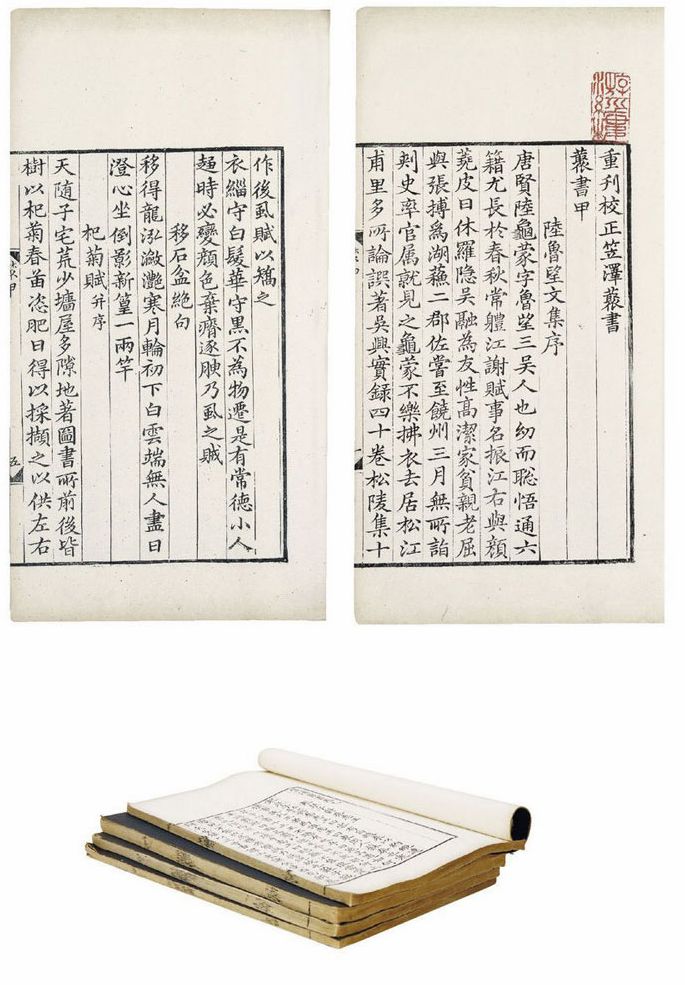 重刊校正笠澤藂書
藂書甲
陸魯望文集序
唐賢陸龜蒙字魯望三吳人也幼而聡悟通六
籍尤長於春秋常軆江謝賦事名振江右與顏
蕘皮日休羅隐吳融為友性高潔家貧親老屈
與張摶為湖蘓二郡佐嘗至饒州三月無所詣
刾史率官属就見之龜蒙不樂拂衣去居松江
甫里多所論譔著吳興實録四十卷松陵集十
作後虱賦以矯之
衣緇守白髮華守黒不為物遷是有常徳小人
趨時必變顔色棄瘠逐腴乃虱之賊
移石盆絕句
移得龍泓潋灧寒月輪初下白雲端無人盡日
澄心坐倒影新篁一兩竿
杞菊賦并序
天随子宅荒少墻屋多隙地著圖書所前後皆
樹以杞菊春苗恣肥日得以採擷之以供左右
五